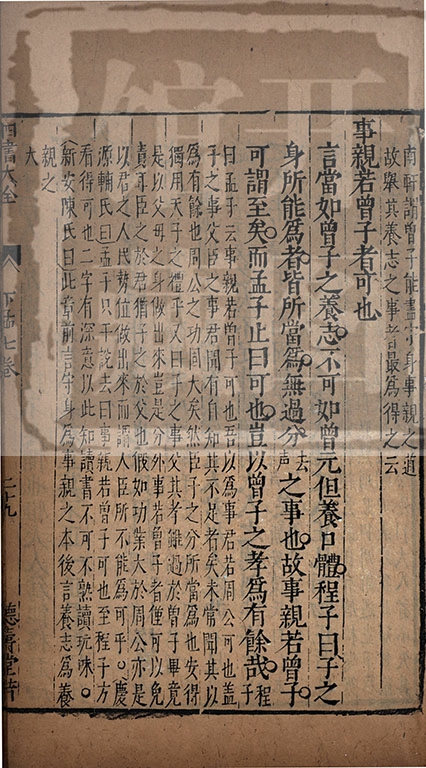 南軒謂曾子能盡守身事親之道
故舉其養志之事者最為得之云
事親若曾子者可也
言當如曾子之養志不可如曾元但養口體程子曰子之
身所能為者皆所當為無過分去聲之事也故事親若曾子
可謂至矣而孟子止曰可也豈以曾子之孝為有餘哉程子
曰孟子云事親若曾子可也吾以為事君若周公可也蓋
子之事父臣之事君聞有自知其不足者矣未嘗聞其以
為有餘也周公之功固大矣然臣子之分所當為也安得
獨用天子之禮乎又曰子之事父其孝雖過於曾子畢竟
是以父母之身做出來豈是分外事若曾子者僅可以免
責耳臣之於君猶子之於父也假如功業大於周公亦是
以君之人民勢位做出來而謂人臣所不能為可乎慶
源輔氏曰孟子只平說去曰事親若曾子可也至程子方
看得可也二字有深意以此知讀書不可不熟讀玩味
新安陳氏曰此章前言守身為事親之本後言養志為養
親之
大
四書大全
下孟七卷
二十九
德壽堂梓